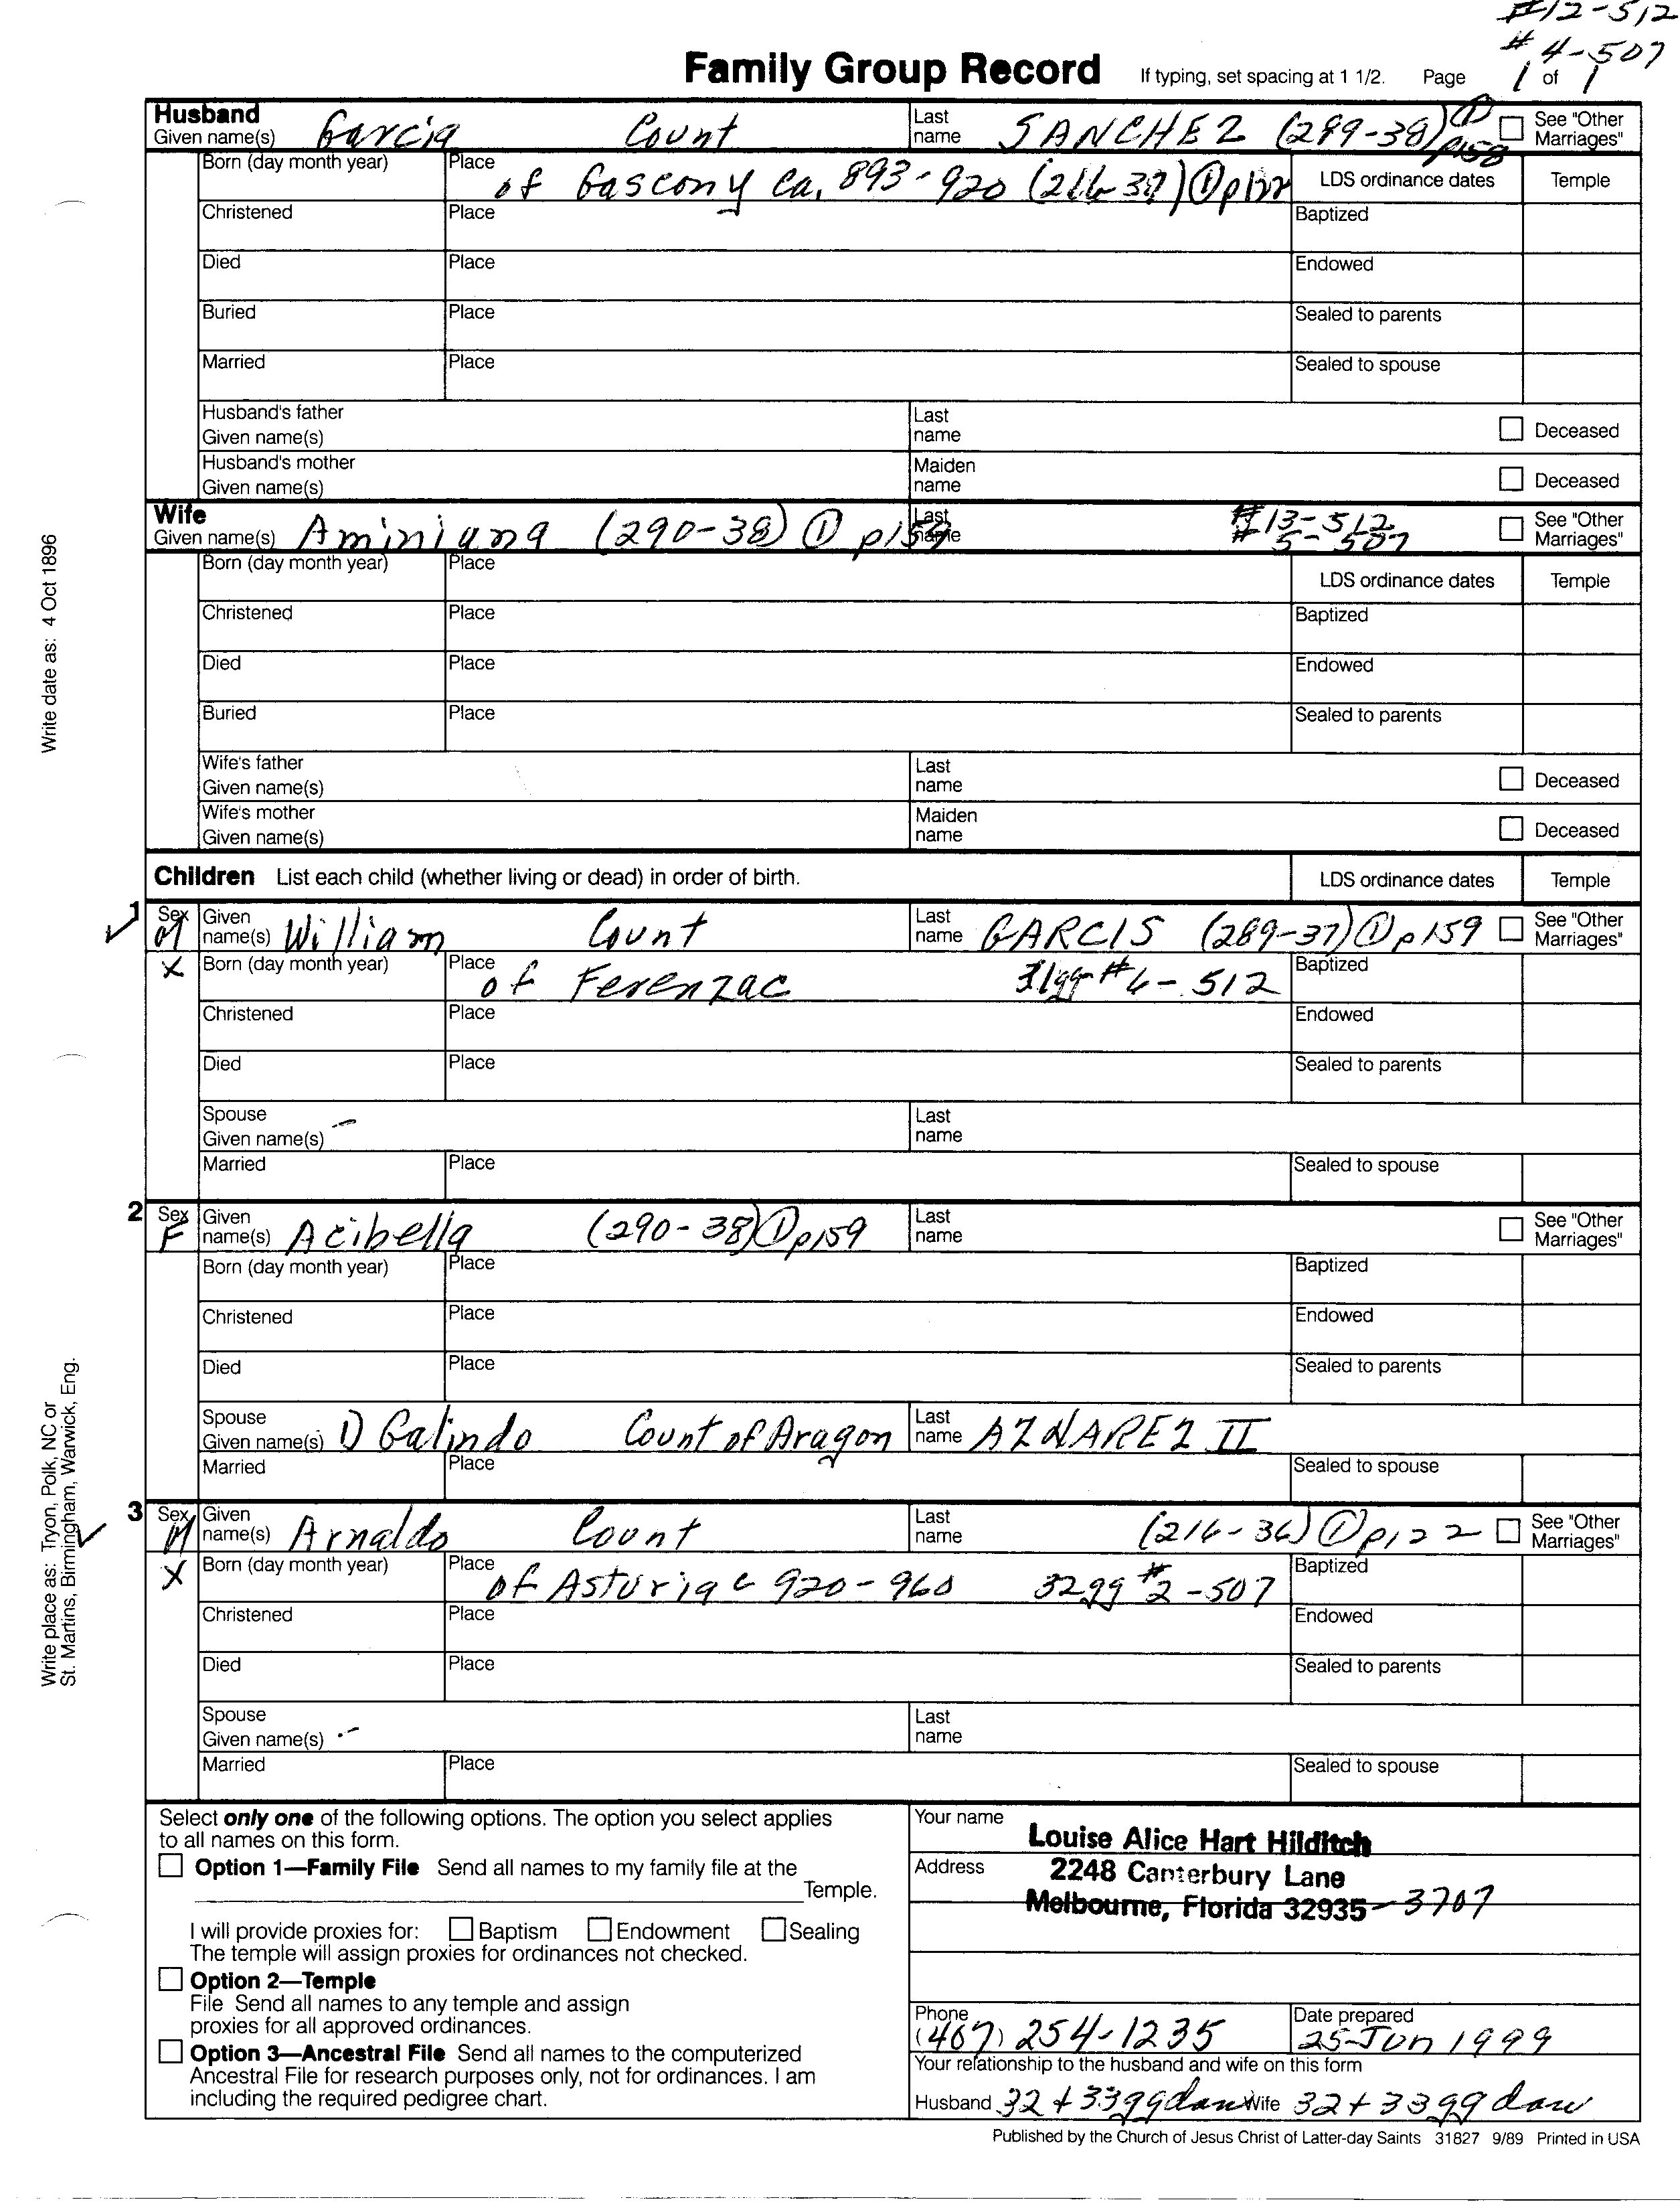 #12-512
#4-507
Family Group Record If typing, set spacing at 1 1/2. Page 1 of 1
Husband
Given name(s) Garcia Count Last name SANCHEZ (289-38) ① p158 See "Other Marriages"
Born (day month year) Place of Gascony ca. 893-920 ① LDS ordinance dates Temple
Christened Place Baptized
Died Place Endowed
Buried Place Sealed to parents
Married Place Sealed to spouse
Husband's father
Given name(s) Last name Deceased
Husband's mother
Given name(s) Maiden name Deceased
Wife
Given name(s) Aminiana (290-38) ① p159 Last name #13-512 See "Other Marriages"
# 5-507
Born (day month year) Place LDS ordinance dates Temple
Christened Place Baptized
Died Place Endowed
Buried Place Sealed to parents
Wife's father
Given name(s) Last name Deceased
Wife's mother
Given name(s) Maiden name Deceased
Children List each child (whether living or dead) in order of birth. LDS ordinance dates Temple
1 Sex M Given name(s) William Count Last name GARCIS (289-37) ① p159 See "Other Marriages"
X Born (day month year) Place of Ferenzac 31gg #6-512 Baptized
Christened Place Endowed
Died Place Sealed to parents
Spouse
Given name(s) Last name
Married Place Sealed to spouse
2 Sex F Given name(s) Acibella (290-38) ① p159 Last name See "Other Marriages"
Born (day month year) Place Baptized
Christened Place Endowed
Died Place Sealed to parents
Spouse
Given name(s) 1) Galindo Count of Aragon Last name AZNAREZ II
Married Place Sealed to spouse
3 Sex M Given name(s) Arnaldo Count Last name (216-36) ① p122 See "Other Marriages"
X Born (day month year) Place of Asturiac 920-960 32gg #2-507 Baptized
Christened Place Endowed
Died Place Sealed to parents
Spouse
Given name(s) Last name
Married Place Sealed to spouse
Select only one of the following options. The option you select applies
to all names on this form.
Option 1—Family File Send all names to my family file at the
Temple.
I will provide proxies for: Baptism Endowment Sealing
The temple will assign proxies for ordinances not checked.
Option 2—Temple
File Send all names to any temple and assign
proxies for all approved ordinances.
Option 3—Ancestral File Send all names to the computerized
Ancestral File for research purposes only, not for ordinances. I am
including the required pedigree chart.
Your name Louise Alice Hart Hilditch
Address 2248 Canterbury Lane
Melbourne, Florida 32935-3707
Phone (407) 254-1235 Date prepared 25-Jun 1999
Your relationship to the husband and wife on this form
Husband 32+33gg dau Wife 32+33gg dau
Published by the Church of Jesus Christ of Latter-day Saints 31827 9/89 Printed in USA
Write date as: 4 Oct 1896
Write place as: Tryon, Polk, NC or
St. Martins, Birmingham, Warwick, Eng.